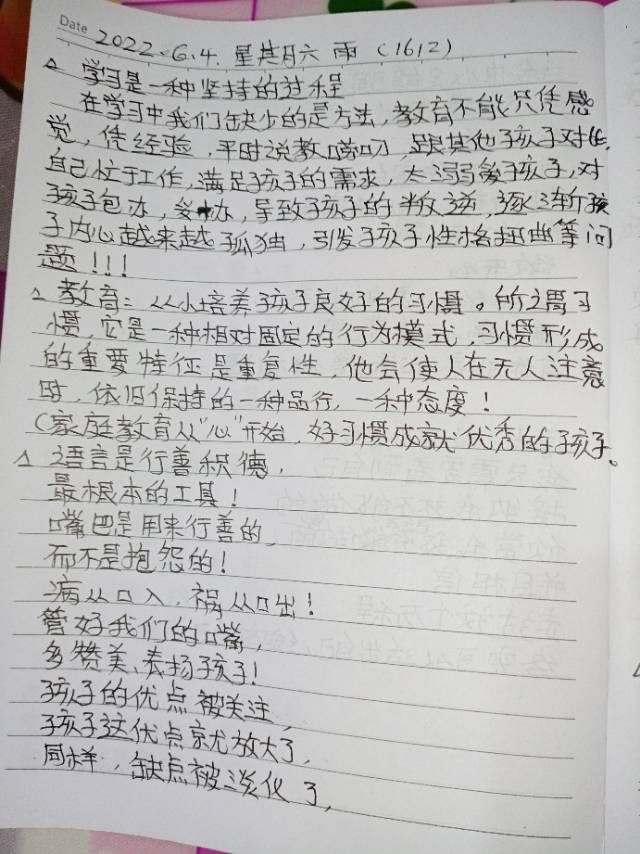 Date 2022.6.4. 星期六 雨 (1612)
△ 学习是一种坚持的过程
在学习中我们缺少的是方法,教育不能只凭感
觉,凭经验,平时说教唠叨,跟其他孩子对比,
自己忙于工作,满足孩子的需求,太溺爱孩子,对
孩子包办,导致孩子的叛逆,逐渐孩
子内心越来越孤独,引发孩子性格扭曲等问
题!!!
△ 教育:从小培养孩子良好的习惯。所谓习
惯,它是一种相对固定的行为模式,习惯形成
的重要特征是重复性,他会使人在无人注意
时,依旧保持的一种品行,一种态度!
(家庭教育从“心”开始,好习惯成就优秀的孩子。
△ 语言是行善积德,
最根本的工具!
嘴巴是用来行善的,
而不是抱怨的!
病从口入,祸从口出!
管好我们的嘴,
多赞美、表扬孩子!
孩子的优点被关注,
孩子这优点就放大了,
同样,缺点被淡化了,